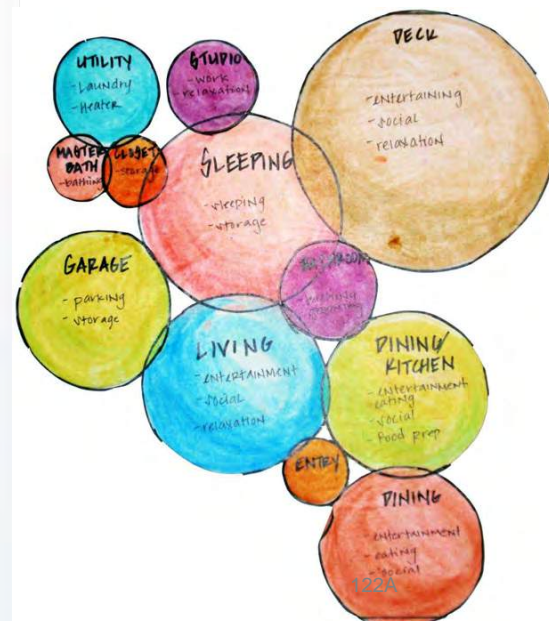 UTILITY
- Laundry
- Heater
STUDIO
- work
- relaxation
DECK
- entertaining
- social
- relaxation
MASTER
BATH
- bathing
CLOSET
- storage
SLEEPING
- sleeping
- storage
GARAGE
- parking
- storage
BATHROOM
- bathing
LIVING
- entertainment
- social
- relaxation
DINING/
KITCHEN
- entertainment
- eating
- social
- food prep
ENTRY
DINING
- entertainment
- eating
- social
122A